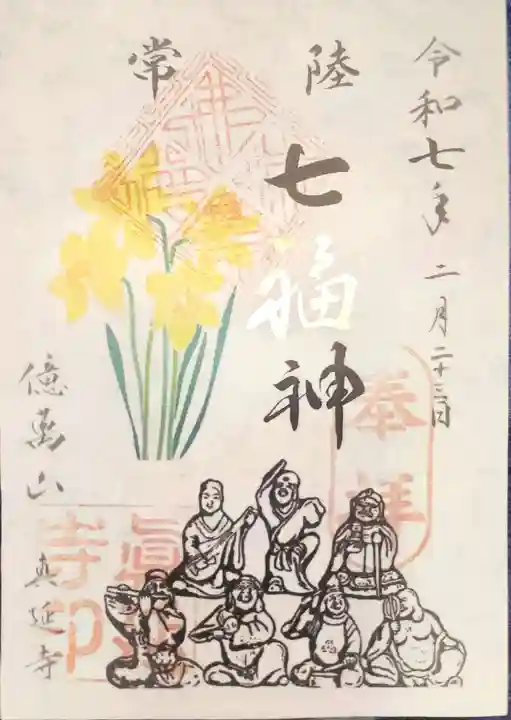 令和七年 二月二十三日
奉拝
常陸
七福神
億萬山 真延寺
眞延寺印